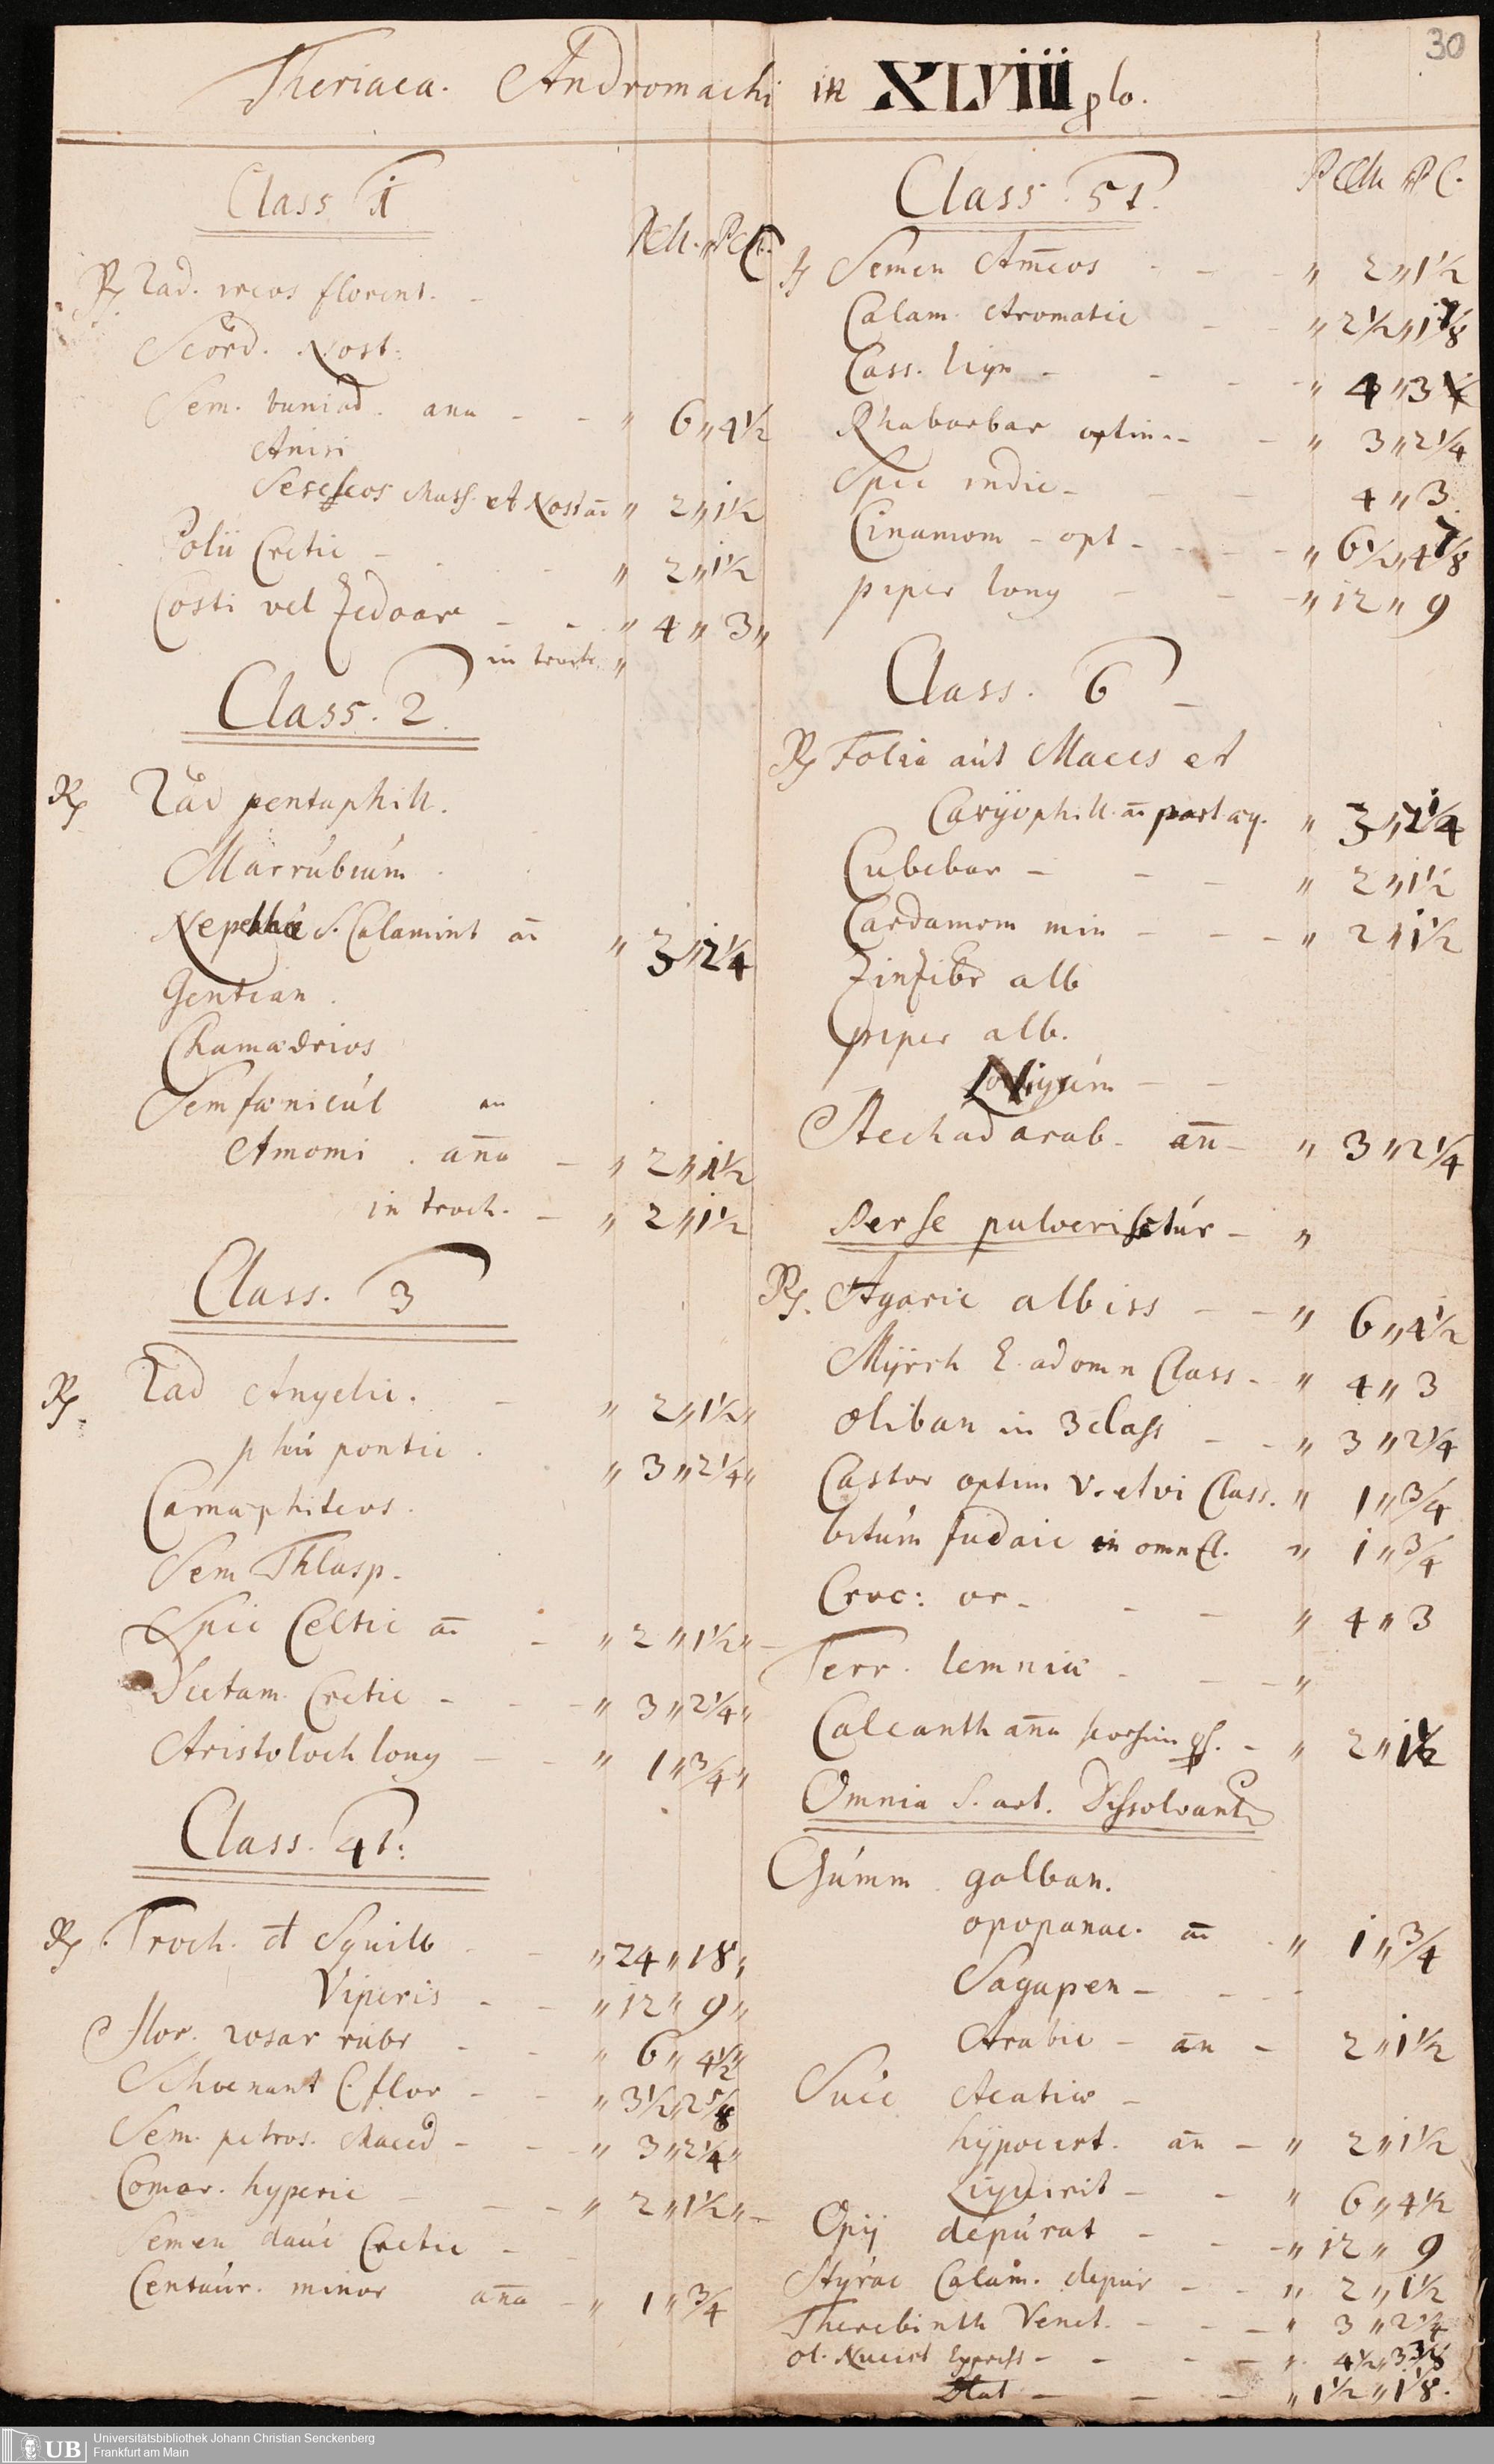 30
Theriaca. Andromachi in XLViii plo.
Class 1
Rad. ireos florent.
Scord. Nost.
Sem. buniad. ana - - " 6 " 4½
Anisi
Seseleos Mass. et Nost an " 2 " 1½
Polii Cretic - " 2 " 1½
Costi vel Zedoar - - " 4 " 3 "
in troch. "
Class. 2.
Rp Rad pentaphill.
Marrubium
Nepethae S. Calamint an " 3 " 2¼
Gentian.
Chamaedrios
Sem faenicul an
Amomi. ana - " 2 " 1½
in troch. - " 2 " 1½
Class. 3
Rp. Rad Angelic. - " 2 " 1½ "
phu pontic. " 3 " 2¼ "
Camaephiteos.
Sem Thlasp.
Spic Celtic an - " 2 " 1½ "
Dictam. Cretic - - " 3 " 2¼ "
Aristoloch long - - " 1 " ¾ "
Class. 4t.
Rp. Troch. et Squill - " 24 " 18 "
Viperis - - " 12 " 9 "
flor. rosar rubr - - " 6 " 4½ "
Schoenant C. flor - - " 3½ " 2⅝
Sem. petros. Maced - - " 3 " 2¼ "
Comar. hyperic - - - " 2 " 1½ " -
Semen dauci Cretic - -
Centaur. minor ana - " 1 " ¾
Class. 5t.
Semen Ammeos - - " 2 " 1½
Calam. Aromatic - - " 2½ " 1⅞
Cass. lign - - - " 4 " 3
Rhabarbar optim - - " 3 " 2¼
Spic indic - - 4 " 3
Cinamom - opt - - - - " 6½ " 4⅞
piper long - - - " 12 " 9
Class. 6 -
Rp Folia aut Maces et
Caryophill. an part aeq. " 3 " 2¼
Cubebar - - - " 2 " 1½
Cardamom min - - - " 2 " 1½
Zinziber alb
piper alb.
- -
Stechad arab - ann - " 3 " 2¼
Per se pulverisetur - "
Rp. Agaric albiss - - " 6 " 4½
Myrrh E. ad omn Class - " 4 " 3
oliban in 3 class - - " 3 " 2¼
Castor optim V. et vi Class. " 1 " ¾
bitum Judaic in omn Cl. " 1 " ¾
Croc: or - - - " 4 " 3
Terr. lemniae - - - "
Calcanth ana - " 2 " 1½
Omnia S. art. Dissolvant
Gumm galban.
opopanac. an - " 1 " ¾
Sagapen - - - -
Arabic - an - 2 " 1½
Succ Acatiae -
hypocist. an - " 2 " 1½
Liquirit - - " 6 " 4½
Opij depurat - - - " 12 " 9
Styrac Calam. depur - - " 2 " 1½
Therebinth Venet. - - - " 3 " 2¼
ol. Nucist Express - - - - " 4½ " 3⅜
- - - " 1½ " 1⅛.
UB
Universitätsbibliothek Johann Christian Senckenberg
Frankfurt am Main